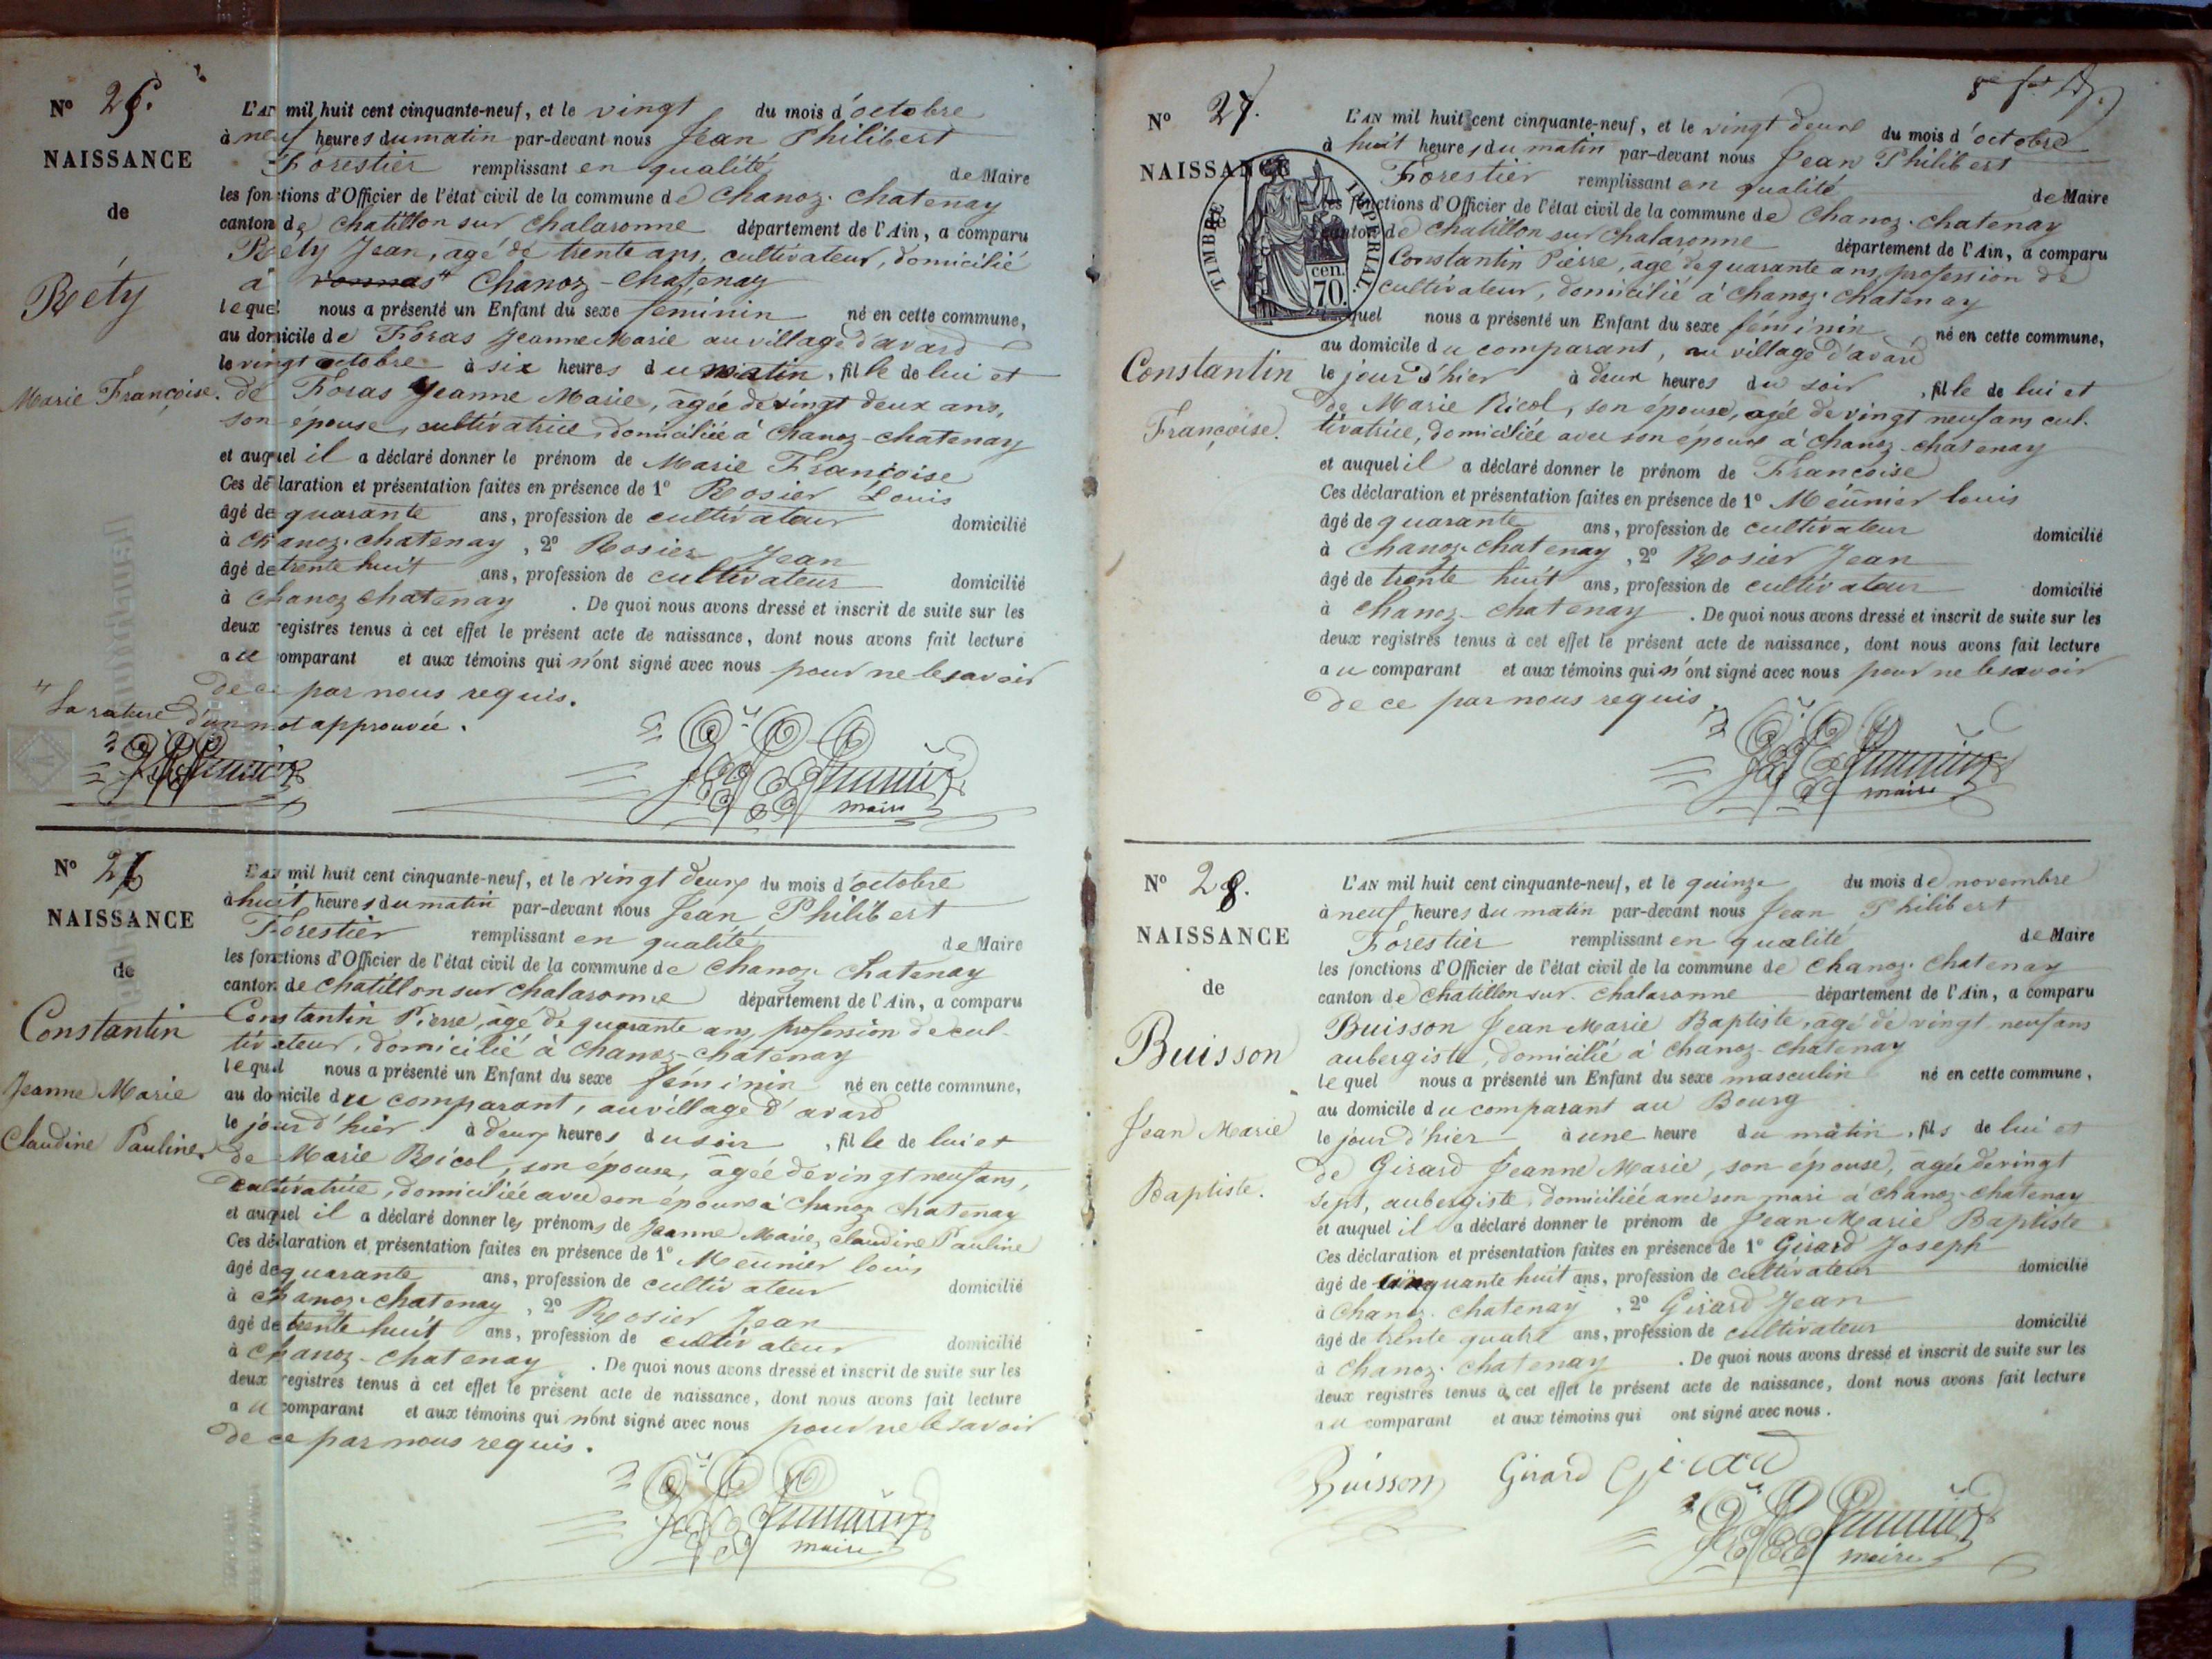 N° 25.
NAISSANCE
de
Réty
Marie Françoise.
L'AN mil huit cent cinquante-neuf, et le vingt du mois d'octobre
à neuf heures du matin par-devant nous Jean Philibert
Forestier remplissant en qualité de Maire
les fonctions d'Officier de l'état civil de la commune de Chanoz-Chatenay
canton de Chatillon sur Chalaronne département de l'Ain, a comparu
Réty Jean, âgé de trente ans, cultivateur, domicilié
à Chanoz-Chatenay
lequel nous a présenté un Enfant du sexe féminin né en cette commune,
au domicile de Foras Jeanne Marie au village d'avard
le vingt octobre à six heures du matin, fille de lui et
de Foras Jeanne Marie, âgée de vingt deux ans,
son épouse, cultivatrice, domiciliée à Chanoz-Chatenay
et auquel il a déclaré donner le prénom de Marie Françoise
Ces déclaration et présentation faites en présence de 1° Rosier Louis
âgé de quarante ans, profession de cultivateur domicilié
à Chanoz-Chatenay, 2° Rosier Jean
âgé de trente huit ans, profession de cultivateur domicilié
à Chanoz Chatenay. De quoi nous avons dressé et inscrit de suite sur les
deux registres tenus à cet effet le présent acte de naissance, dont nous avons fait lecture
au comparant et aux témoins qui n'ont signé avec nous pour ne le savoir
de ce par nous requis.
La rature d'un mot approuvée.
maire
N° 26
NAISSANCE
de
Constantin
Jeanne Marie
Claudine Pauline.
L'AN mil huit cent cinquante-neuf, et le vingt deux du mois d'octobre
à huit heures du matin par-devant nous Jean Philibert
Forestier remplissant en qualité de Maire
les fonctions d'Officier de l'état civil de la commune de Chanoz-Chatenay
canton de Chatillon sur Chalaronne département de l'Ain, a comparu
Constantin Pierre, âgé de quarante ans, profession de cul-
tivateur, domicilié à Chanoz-Chatenay
lequel nous a présenté un Enfant du sexe féminin né en cette commune,
au domicile du comparant, au village d'avard
le jour d'hier à deux heures du soir, fille de lui et
de Marie Ricol, son épouse, âgée de vingt neuf ans,
cultivatrice, domiciliée avec son époux à Chanoz Chatenay
et auquel il a déclaré donner les prénoms de Jeanne Marie, Claudine Pauline
Ces déclaration et présentation faites en présence de 1° Meunier Louis
âgé de quarante ans, profession de cultivateur domicilié
à Chanoz-Chatenay, 2° Rosier Jean
âgé de trente huit ans, profession de cultivateur domicilié
à Chanoz-Chatenay. De quoi nous avons dressé et inscrit de suite sur les
deux registres tenus à cet effet le présent acte de naissance, dont nous avons fait lecture
au comparant et aux témoins qui n'ont signé avec nous pour ne le savoir
de ce par nous requis.
maire
N° 27.
NAISSANCE
TIMBRE IMPERIAL.
70. cen.
Constantin
Françoise.
L'AN mil huit cent cinquante-neuf, et le vingt deux du mois d'octobre
à huit heures du matin par-devant nous Jean Philibert
Forestier remplissant en qualité de Maire
les fonctions d'Officier de l'état civil de la commune de Chanoz-Chatenay
canton de Chatillon sur Chalaronne département de l'Ain, a comparu
Constantin Pierre, âgé de quarante ans, profession de
cultivateur, domicilié à Chanoz-Chatenay
lequel nous a présenté un Enfant du sexe féminin né en cette commune,
au domicile du comparant, au village d'avard
le jour d'hier à deux heures du soir, fille de lui et
de Marie Ricol, son épouse, âgée de vingt neuf ans cul-
tivatrice, domiciliée avec son époux à Chanoz-Chatenay
et auquel il a déclaré donner le prénom de Françoise
Ces déclaration et présentation faites en présence de 1° Meunier Louis
âgé de quarante ans, profession de cultivateur domicilié
à Chanoz-Chatenay, 2° Rosier Jean
âgé de trente huit ans, profession de cultivateur domicilié
à Chanoz-Chatenay. De quoi nous avons dressé et inscrit de suite sur les
deux registres tenus à cet effet le présent acte de naissance, dont nous avons fait lecture
au comparant et aux témoins qui n'ont signé avec nous pour ne le savoir
de ce par nous requis.
maire
N° 28.
NAISSANCE
de
Buisson
Jean Marie
Baptiste.
L'AN mil huit cent cinquante-neuf, et le quinze du mois de novembre
à neuf heures du matin par-devant nous Jean Philibert
Forestier remplissant en qualité de Maire
les fonctions d'Officier de l'état civil de la commune de Chanoz-Chatenay
canton de Chatillon-sur-Chalaronne département de l'Ain, a comparu
Buisson Jean Marie Baptiste, âgé de vingt neuf ans
aubergiste, domicilié à Chanoz-Chatenay
lequel nous a présenté un Enfant du sexe masculin né en cette commune,
au domicile du comparant au Bourg
le jour d'hier à une heure du matin, fils de lui et
de Girard Jeanne Marie, son épouse, âgée de vingt
sept, aubergiste, domiciliée avec son mari à Chanoz-Chatenay
et auquel il a déclaré donner le prénom de Jean Marie Baptiste
Ces déclaration et présentation faites en présence de 1° Girard Joseph
âgé de cinquante huit ans, profession de cultivateur domicilié
à Chanoz-Chatenay, 2° Girard Jean
âgé de trente quatre ans, profession de cultivateur domicilié
à Chanoz-Chatenay. De quoi nous avons dressé et inscrit de suite sur les
deux registres tenus à cet effet le présent acte de naissance, dont nous avons fait lecture
au comparant et aux témoins qui ont signé avec nous.
Buisson Girard Girard
maire